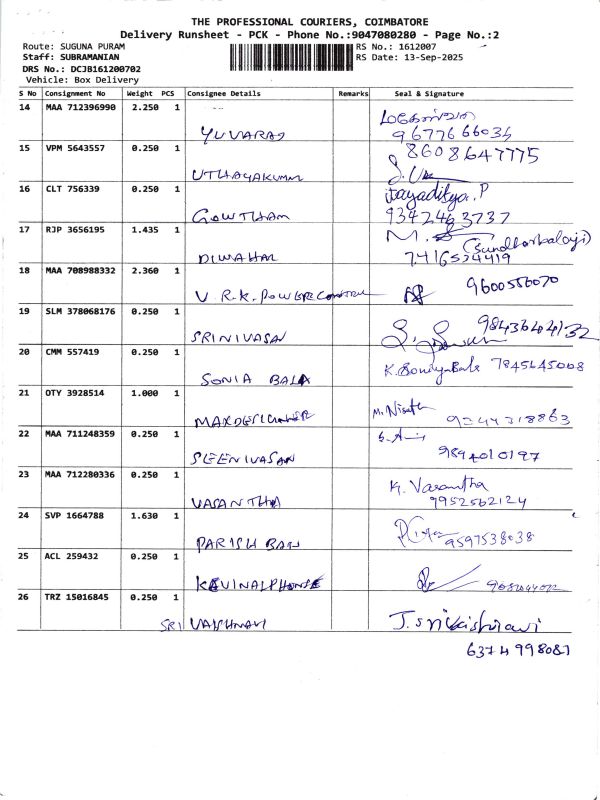 THE PROFESSIONAL COURIERS, COIMBATORE
Delivery Runsheet - PCK - Phone No.:9047080280 - Page No.:2
Route: SUGUNA PURAM RS No.: 1612007
Staff: SUBRAMANIAN RS Date: 13-Sep-2025
DRS No.: DCJB161200702
Vehicle: Box Delivery
S No Consignment No Weight PCS Consignee Details Remarks Seal & Signature
14 MAA 712396990 2.250 1
YUVARAJ 9677666034
15 VPM 5643557 0.250 1 8608647775
UTHAYAKUMAR
16 CLT 756339 0.250 1 Jayaditya.P
GOWTHAM 9342463737
17 RJP 3656195 1.435 1 M. (Sundharbalaji)
DIWAHAR 7416524419
18 MAA 708988332 2.360 1 9600556070
V R.K. POWER CONTROL
19 SLM 378068176 0.250 1 9843644132
SRINIVASAN
20 CMM 557419 0.250 1 K. SoniyaBala 7845645008
SONIA BALA
21 OTY 3928514 1.000 1 M. Nisath
9244318863
22 MAA 711248359 0.250 1
SEENIVASAN 9894010197
23 MAA 712280336 0.250 1 K. Vasantha
VASANTHA 9952562124
24 SVP 1664788 1.630 1
PARISH BAN 9597538038
25 ACL 259432 0.250 1
KEVINALPHONSE
26 TRZ 15016845 0.250 1
SRI VAISHNAVI J. Srivaishnavi
6374998087